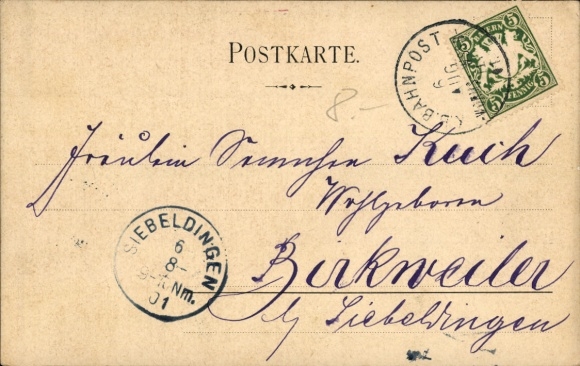 POSTKARTE.
K.B.BAHNPOST
6
AUG
BAYERN
5 5
PFENNIG
5 5
8.-
Fräulein Kuch
Wohlgeboren
Birkweiler
b/ Siebeldingen
SIEBELDINGEN
6
8-
Nm.
01